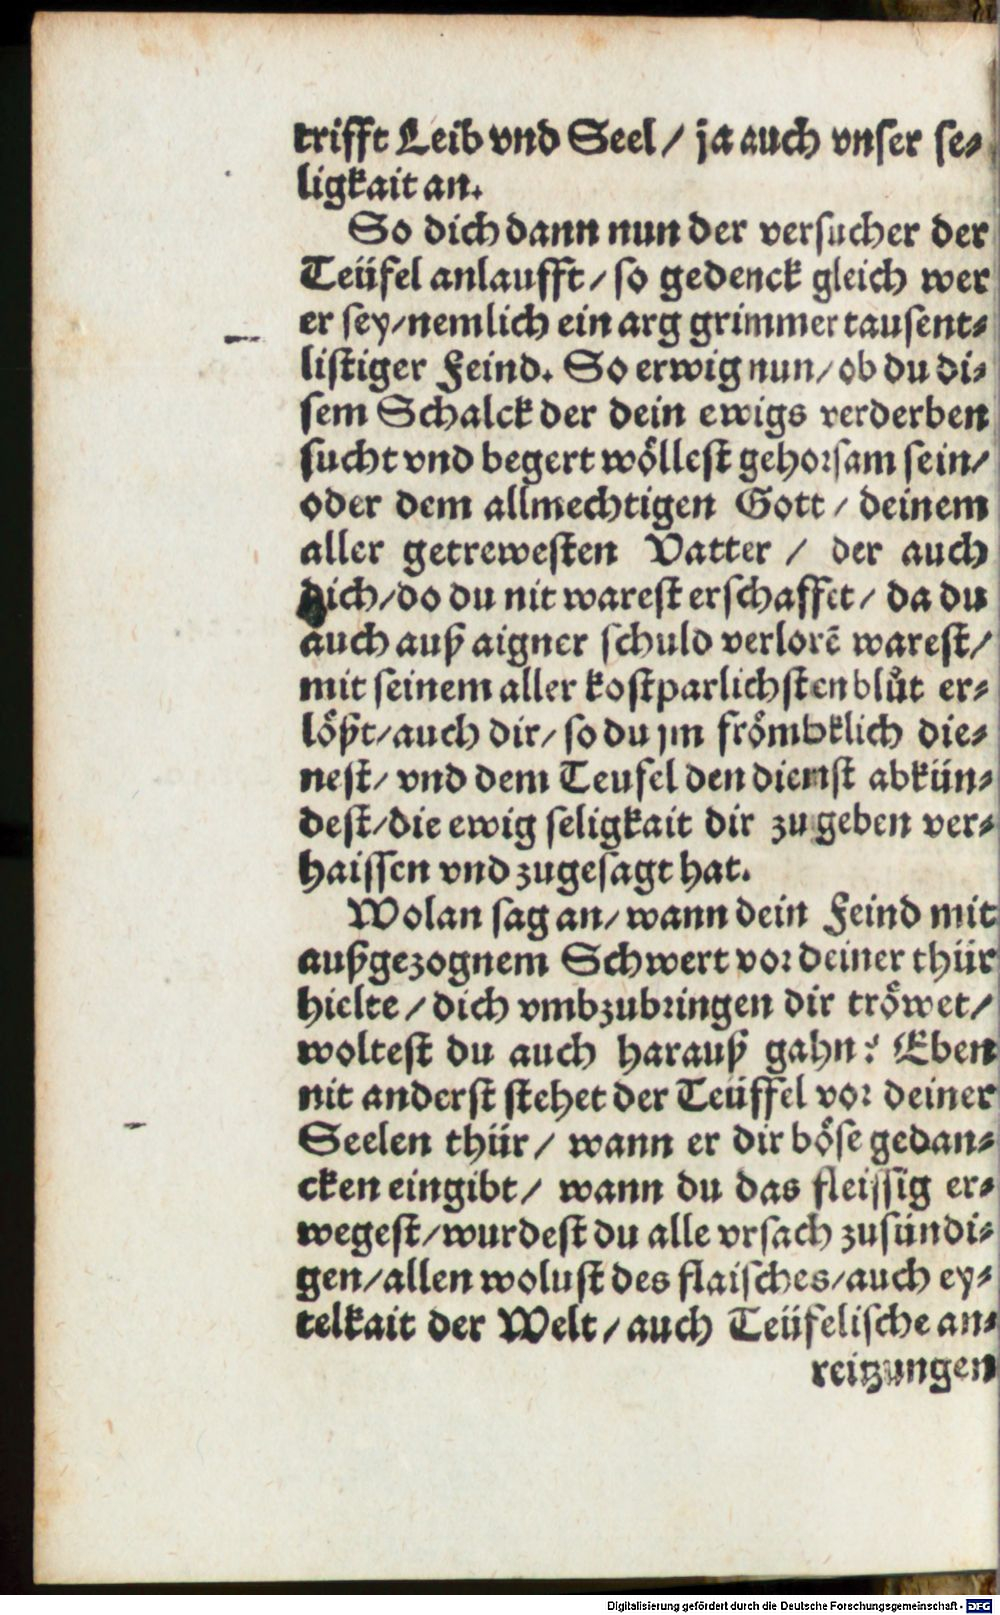 trifft Leib vnd Seel / ja auch vnser se⸗
ligkait an.
So dich dann nun der versucher der
Teüfel anlaufft / so gedenck gleich wer
er sey / nemlich ein arg grimmer tausent⸗
listiger Feind. So erwig nun / ob du di⸗
sem Schalck der dein ewigs verderben
sucht vnd begert wöllest gehorsam sein /
oder dem allmechtigen Gott / deinem
aller getrewesten Vatter / der auch
dich / do du nit warest erschaffet / da du
auch auß aigner schuld verlorē warest /
mit seinem aller kostparlichsten blůt er⸗
lößt / auch dir / so du jm frömbklich die⸗
nest / vnd dem Teufel den dienst abkün⸗
dest / die ewig seligkait dir zu geben ver⸗
haissen vnd zugesagt hat.
Wolan sag an / wann dein Feind mit
außgezognem Schwert vor deiner thür
hielte / dich vmbzubringen dir tröwet /
woltest du auch harauß gahn? Eben
nit anderst stehet der Teüffel vor deiner
Seelen thür / wann er dir böse gedan⸗
cken eingibt / wann du das fleissig er⸗
wegest / wurdest du alle vrsach zusündi⸗
gen / allen wolust des flaisches / auch ey⸗
telkait der Welt / auch Teüfelische an⸗
reitzungen
Digitalisierung gefördert durch die Deutsche Forschungsgemeinschaft - DFG